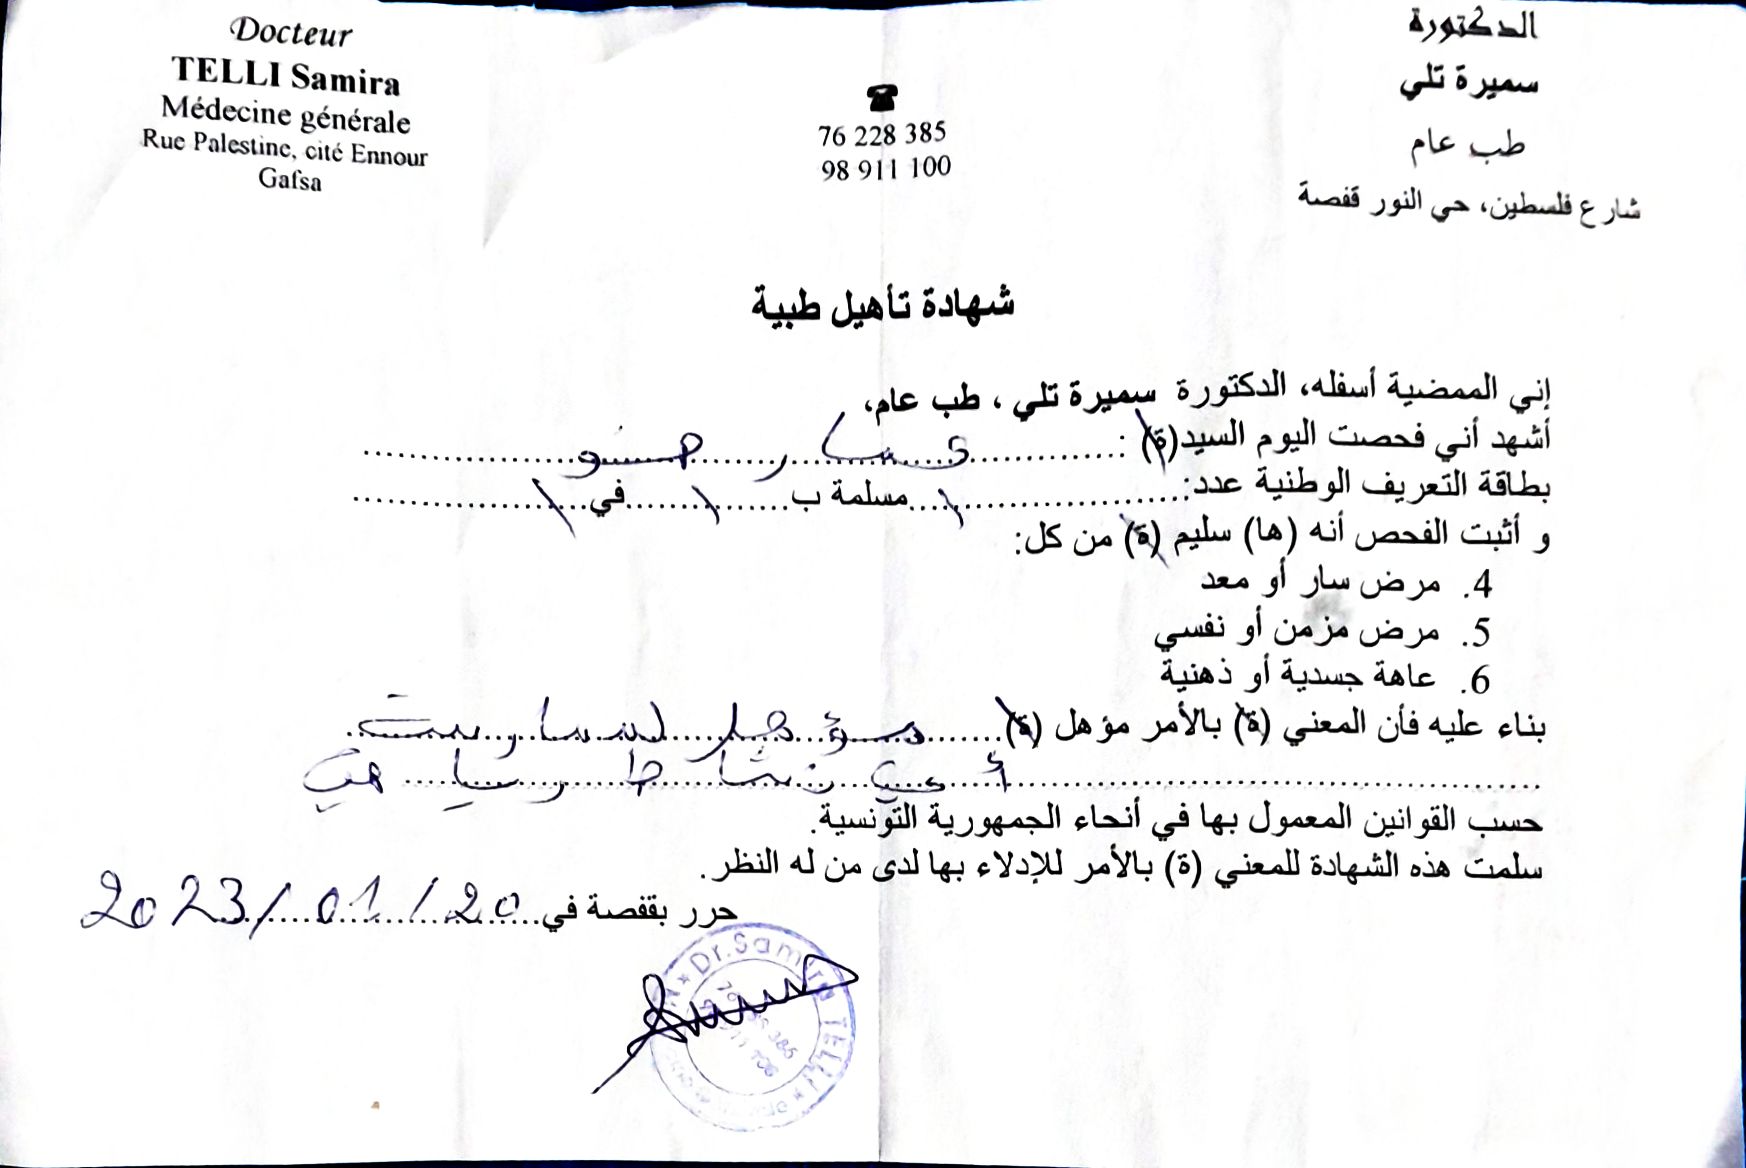 Docteur
TELLI Samira
Médecine générale
Rue Palestine, cité Ennour
Gafsa
76 228 385
98 911 100
الدكتورة
سميرة تلي
طب عام
شارع فلسطين، حي النور قفصة
شهادة تأهيل طبية
إني الممضية أسفله، الدكتورة سميرة تلي ، طب عام،
أشهد أني فحصت اليوم السيد(ة) :
بطاقة التعريف الوطنية عدد: \ مسلمة ب \ في \
و أثبت الفحص أنه (ها) سليم (ة) من كل:
4. مرض سار أو معد
5. مرض مزمن أو نفسي
6. عاهة جسدية أو ذهنية
بناء عليه فأن المعني (ة) بالأمر مؤهل (ة) مؤهل
أي نشاط رياضي
حسب القوانين المعمول بها في أنحاء الجمهورية التونسية.
سلمت هذه الشهادة للمعني (ة) بالأمر للإدلاء بها لدى من له النظر.
حرر بقفصة في 20 / 01 / 2023
Dr.Samira TELLI